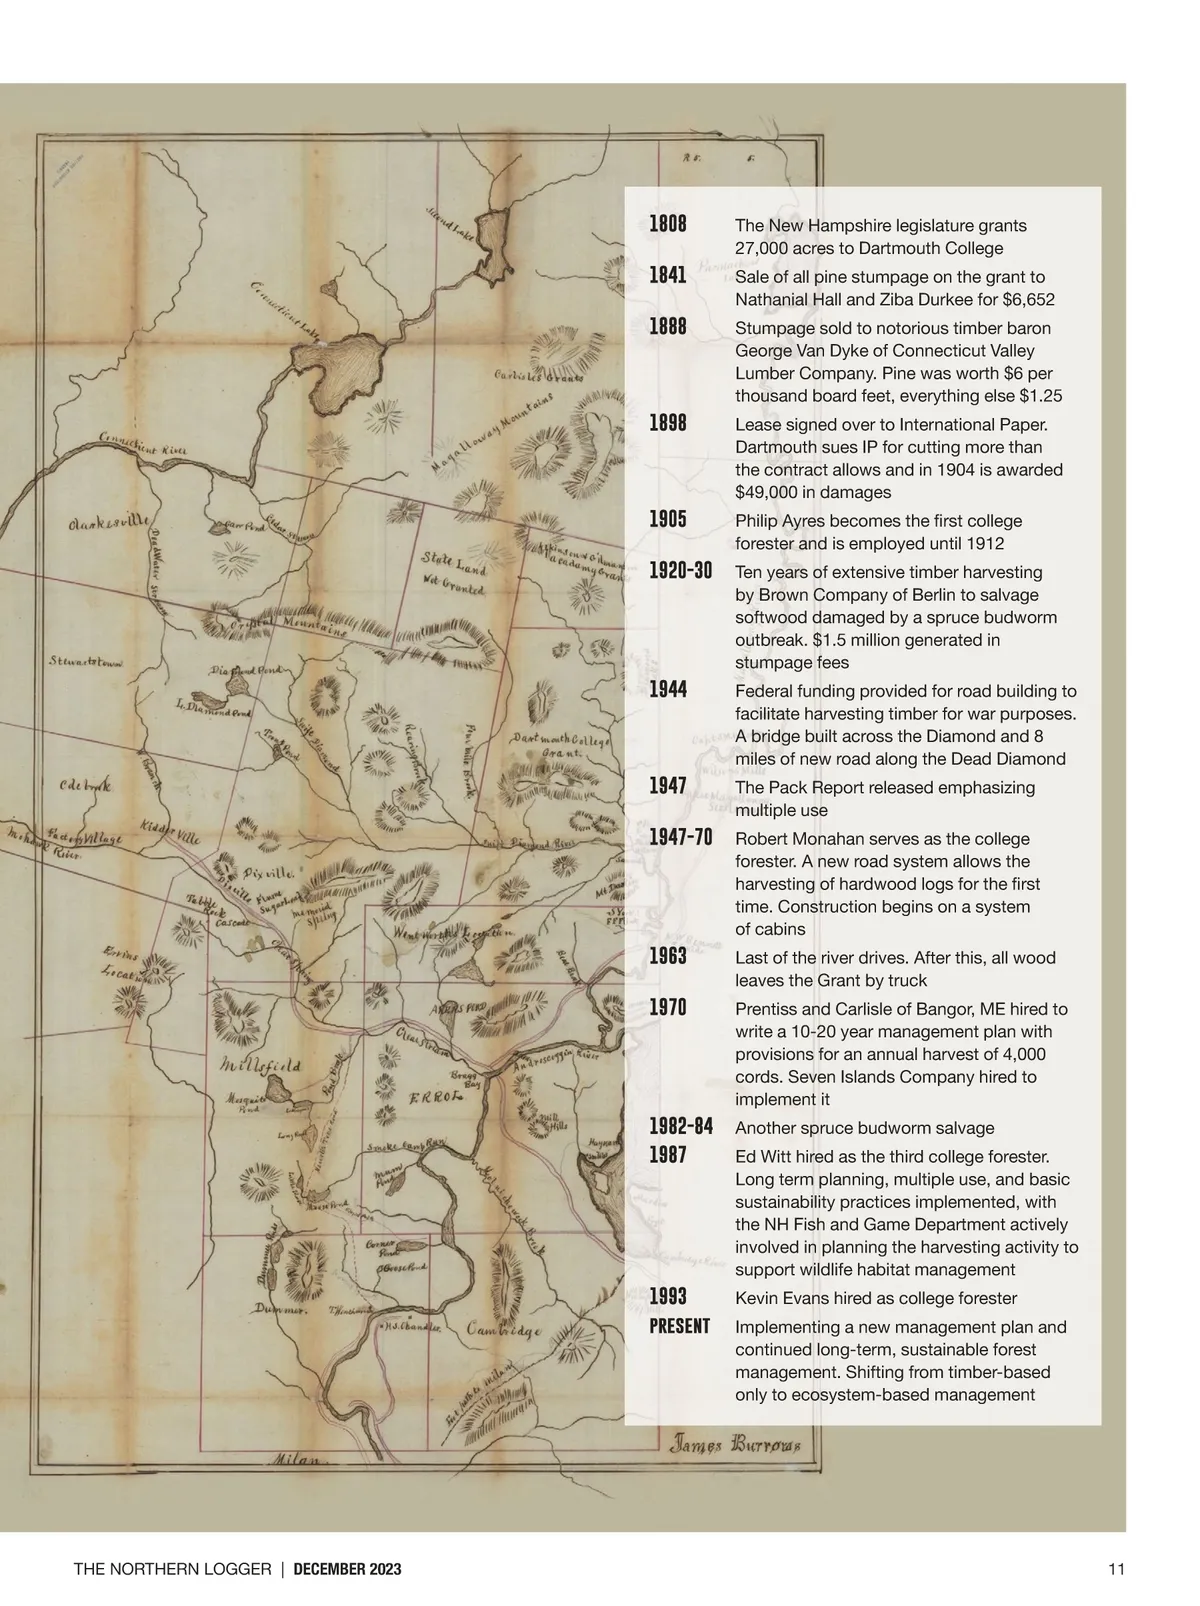 R 5.
5.
Second Lake
Connecticut Lake
Carlisles Grants
Magalloway Mountains
Connecticut River
Clarkesville
Dead Water Stream
Carr Pond
Cedar Stream
State Land
Not Granted
Atkinson & Gilman
Academy Grant
Crystal Mountains
Stewartstown
Diamond Pond
L. Diamond Pond
Swift Diamond
Dartmouth College
Grant.
Colebrook
Factory Village
Kidder Ville
Mohawk River.
Dixville.
Dixville Flume
Table Rock
Cascade
Sugarloaf
Spring
Wentworth's Location.
Clear Stream
Ervins
Location
AKERS POND
Clear Stream
Androscoggin River
Millsfield
Bragg
Bay
ERROL
Mill
Hills
Pond
Smoke Camp Run
Moose Pond
Corner
Pond
Goose Pond
Dummer.
H.S. Chandler.
Cambridge
Milan.
James Burrows
1808 The New Hampshire legislature grants
27,000 acres to Dartmouth College
1841 Sale of all pine stumpage on the grant to
Nathanial Hall and Ziba Durkee for $6,652
1888 Stumpage sold to notorious timber baron
George Van Dyke of Connecticut Valley
Lumber Company. Pine was worth $6 per
thousand board feet, everything else $1.25
1898 Lease signed over to International Paper.
Dartmouth sues IP for cutting more than
the contract allows and in 1904 is awarded
$49,000 in damages
1905 Philip Ayres becomes the first college
forester and is employed until 1912
1920-30 Ten years of extensive timber harvesting
by Brown Company of Berlin to salvage
softwood damaged by a spruce budworm
outbreak. $1.5 million generated in
stumpage fees
1944 Federal funding provided for road building to
facilitate harvesting timber for war purposes.
A bridge built across the Diamond and 8
miles of new road along the Dead Diamond
1947 The Pack Report released emphasizing
multiple use
1947-70 Robert Monahan serves as the college
forester. A new road system allows the
harvesting of hardwood logs for the first
time. Construction begins on a system
of cabins
1963 Last of the river drives. After this, all wood
leaves the Grant by truck
1970 Prentiss and Carlisle of Bangor, ME hired to
write a 10-20 year management plan with
provisions for an annual harvest of 4,000
cords. Seven Islands Company hired to
implement it
1982-84 Another spruce budworm salvage
1987 Ed Witt hired as the third college forester.
Long term planning, multiple use, and basic
sustainability practices implemented, with
the NH Fish and Game Department actively
involved in planning the harvesting activity to
support wildlife habitat management
1993 Kevin Evans hired as college forester
PRESENT Implementing a new management plan and
continued long-term, sustainable forest
management. Shifting from timber-based
only to ecosystem-based management
THE NORTHERN LOGGER | DECEMBER 2023
11